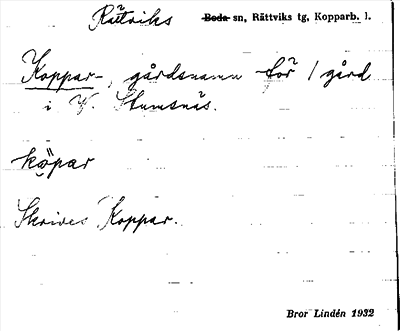 Rättviks Boda sn, Rättviks tg, Kopparb. l.
Koppar-, gårdsnamn för 1 gård
i V. Stumsnäs.
köpar
Skrives Koppar.
Bror Lindén 1932